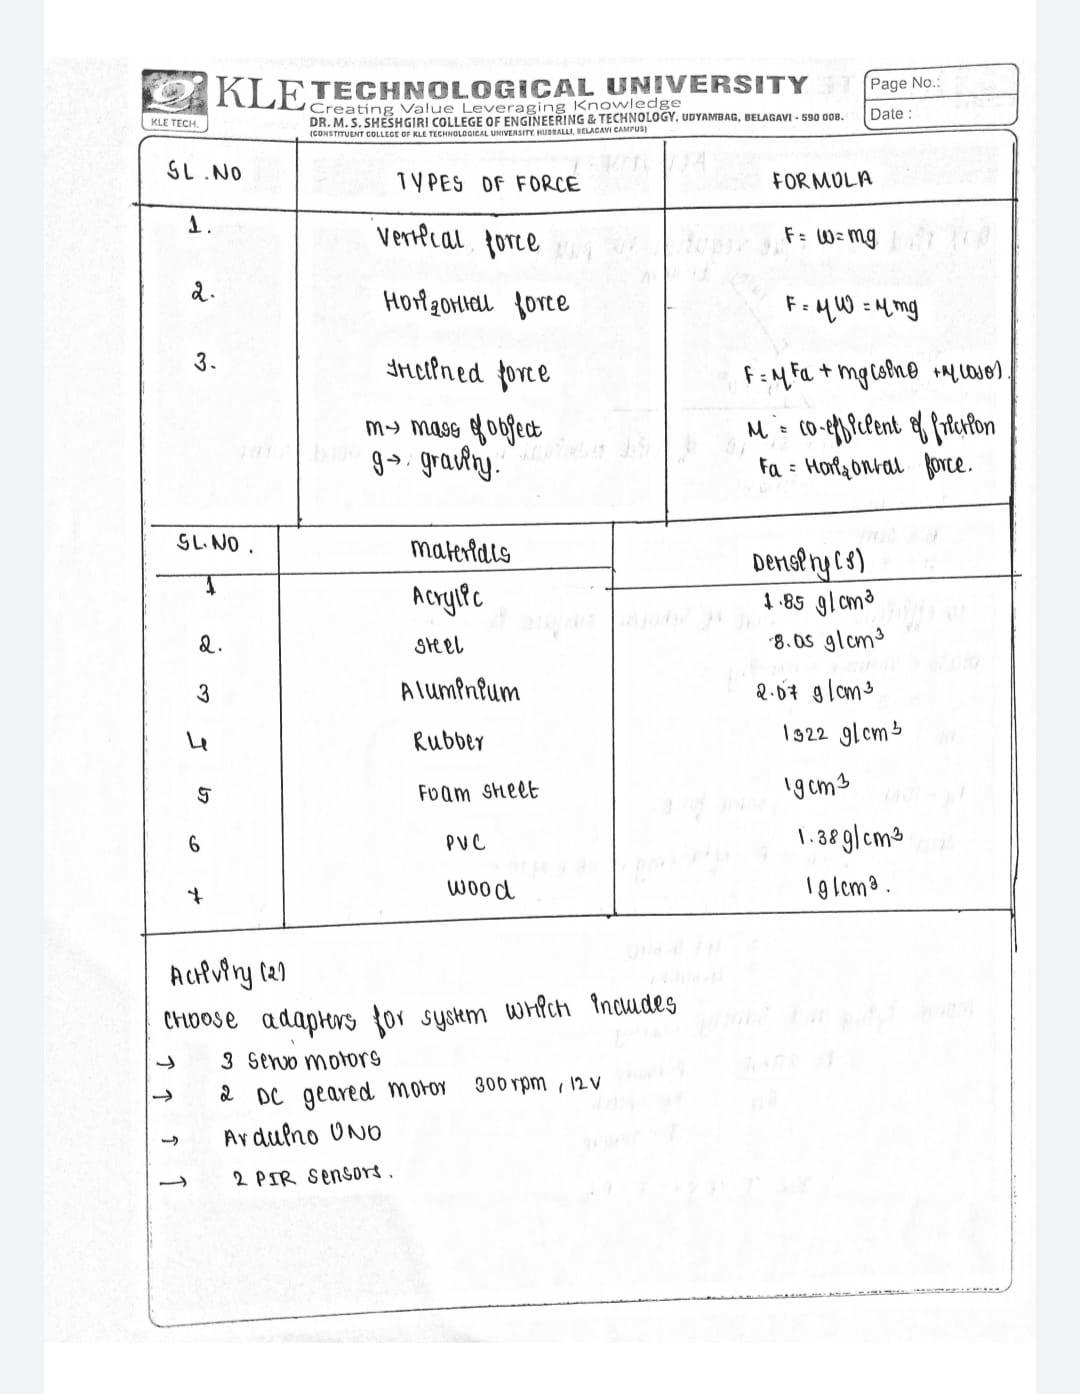 KLE TECHNOLOGICAL UNIVERSITY
Creating Value Leveraging Knowledge
DR. M. S. SHESHGIRI COLLEGE OF ENGINEERING & TECHNOLOGY, UDYAMBAG, BELAGAVI - 590 008.
(CONSTITUENT COLLEGE OF KLE TECHNOLOGICAL UNIVERSITY, HUBBALLI, BELAGAVI CAMPUS)
KLE TECH.
Page No.:
Date :
SL.NO TYPES OF FORCE FORMULA
1. Vertical force F = W = mg
2. Horizontal force F = μW = μmg
3. Inclined force F = μFa + mg(sinθ + μcosθ).
m → mass of object μ = co-efficient of friction
g → gravity. Fa = Horizontal force.
SL.NO. Materials Density (ρ)
1 Acrylic 1.85 g/cm³
2. Steel 8.05 g/cm³
3 Aluminium 2.07 g/cm³
4 Rubber 1522 g/cm³
5 Foam sheet 1gcm³
6 PVC 1.38g/cm³
7 Wood 1g/cm³.
Activity (2)
choose adapters for system which includes
→ 3 Servo motors
→ 2 DC geared motor 300rpm, 12V
→ Arduino UNO
→ 2 PIR sensors.